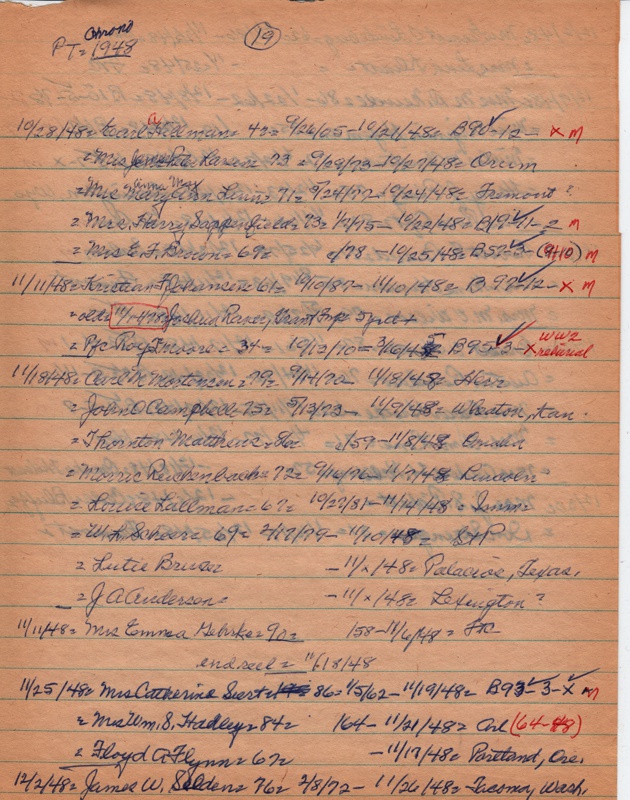 chrono
PT = 1948
19
10/28/48 = Carl A Hillman = 43 = 9/26/05 - 10/21/48 = B90-12 - x m
= Mrs Larsen = 73 = 9/29/73 - 10/27/48 = Orum
= Mrs Mary Ann = 71 = 9/24/77 - 10/24/48 = Fremont ?
= Mrs. Harry Sappenfield = 73 = 1/1/75 - 10/22/48 = B19-11-2 m
= Mrs E. F. Brown = 69 = /78 - 10/25/48 = B57-3- (9+10) m
11/11/48 = Kristian Johansen = 61 = 10/10/87 - 11/10/48 = B 97-12 - x m
= old = 11/14/78
= Pfc Roy Moore = 34 = 10/13/10 - B95-3-x WW2 reburial
11/18/48 = Carl N. Mortensen = 79 = 9/14/70 - 11/18/48 = Herr
= John O Campbell = 75 = 5/13/73 - 11/9/48 = Wheaton, Kan.
= Thornton Matthews = 86 = /59 - 11/8/48 = Omaha
= Morris Reichenbach = 72 = 9/16/76 - 11/7/48 = Lincoln
= Louise Lallman = 67 = 10/27/81 - 11/14/48 =
= W. L. = 69 = 2/17/79 - 11/10/48 =
= Lutie - 11/x/48 = Palacios, Texas.
= J A Anderson = - 11/x/48 = Lexington ?
11/11/48 = Mrs Emma = 90 = 158 - 11/6/48 =
end reel = 11/18/48
11/25/48 = Mrs Catherine = 86 = 1/5/62 - 11/19/48 = B93-3-x m
= Mrs Wm. S. Hadley = 84 = 164 - 11/21/48 = (64-48)
= Floyd A Flynn = 67 = - 11/17/48 = Portland, Ore.
12/2/48 = James W. Selden = 76 = 2/8/72 - 11/26/48 = Tacoma, Wash.